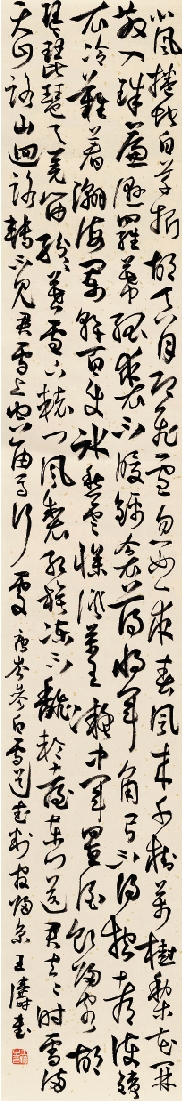 北風捲地白草折胡天八月即飛雪忽如一夜春風來千樹萬樹梨花開
散入珠簾濕羅幕狐裘不暖錦衾薄將軍角弓不得控都護鐵
衣冷難著瀚海闌干百丈冰愁雲慘淡萬里凝中軍置酒飲歸客胡
琴琵琶與羌笛紛紛暮雪下轅門風掣紅旗凍不翻輪臺東門送君去去時雪滿
天山路山迴路轉不見君雪上空留馬行處 唐岑參白雪送武判官歸京 王濤書